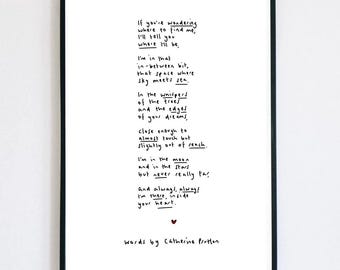 If you're wondering
where to find me,
I'll tell you
where I'll be.
I'm in that
in-between bit,
that space where
sky meets sea.
In the whispers
of the trees
and the edges
of your dreams.
Close enough to
almost touch but
slightly out of reach.
I'm in the moon
and in the stars
but never really far,
and always, always
I'm there, inside
your heart.
words by Catherine Prutton